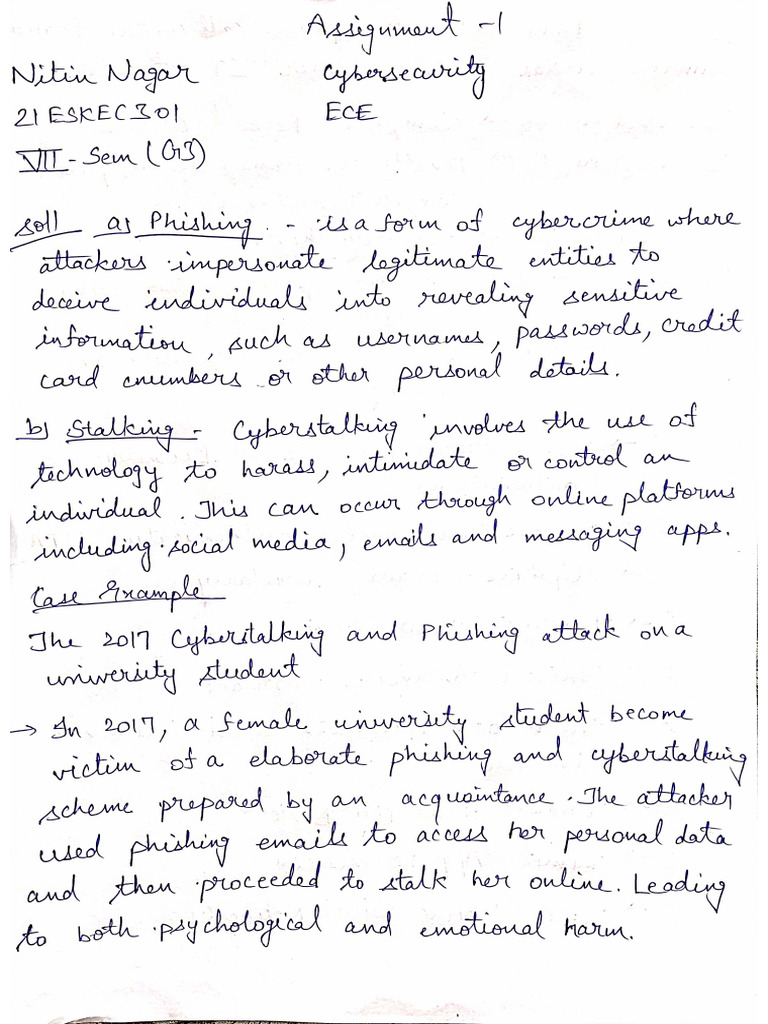 Assignment -1
Nitin Nagar Cybersecurity
21ESKEC301 ECE
VII - Sem (G3)
Sol1 a) Phishing - is a form of cybercrime where
attackers impersonate legitimate entities to
deceive individuals into revealing sensitive
information, such as usernames, passwords, credit
card cnumbers or other personal details.
b) Stalking - Cyberstalking involves the use of
technology to harass, intimidate or control an
individual. This can occur through online platforms
including social media, emails and messaging apps.
Case Example
The 2017 Cyberstalking and Phishing attack on a
university student
→ In 2017, a female university student become
victim of a elaborate phishing and cyberstalking
scheme prepared by an acquaintance. The attacker
used phishing emails to access her personal data
and then proceeded to stalk her online. Leading
to both psychological and emotional harm.